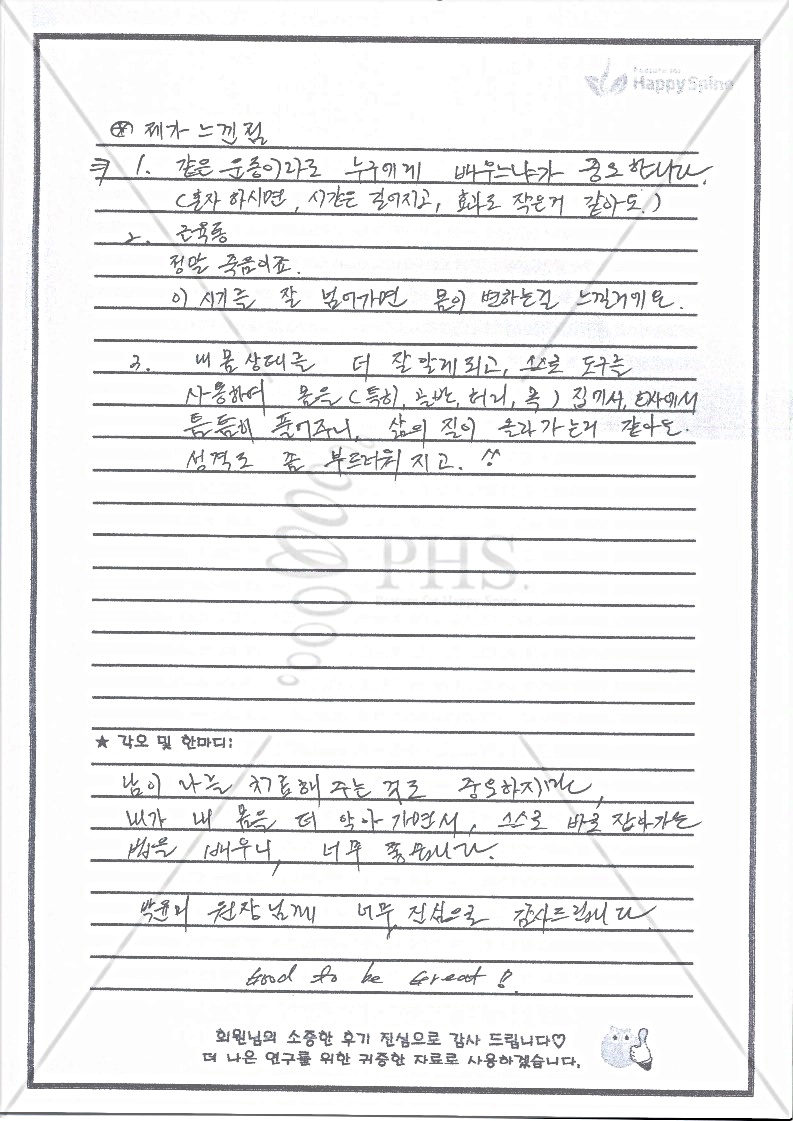 Happy Spine
※ 제가 느낀 점
1. 같은 운동이라도 누구에게 배우느냐가 중요합니다.
(혼자 하시면, 시간은 길어지고, 효과도 작은거 같아요.)
2. 근육통
정말 죽음이죠.
이 시기를 잘 넘어가면 몸이 변하는걸 느낄거예요.
3. 내 몸 상태를 더 잘 알게 되고, 스스로 도구를
사용하여 몸을 (특히, 골반, 허리, 목) 집에서, 회사에서
틈틈히 풀어주니, 삶의 질이 올라가는거 같아요.
성격도 좀 부드러워 지고. ^^
PHS.
★ 각오 및 한마디:
남이 나를 치료해 주는 것도 중요하지만,
내가 내 몸을 더 알아 가면서, 스스로 바로 잡아가는
법을 배우니, 너무 좋습니다.
원장님께 너무 진심으로 감사드립니다
Good to be Great!
회원님의 소중한 후기 진심으로 감사 드립니다♡
더 나은 연구를 위한 귀중한 자료로 사용하겠습니다.